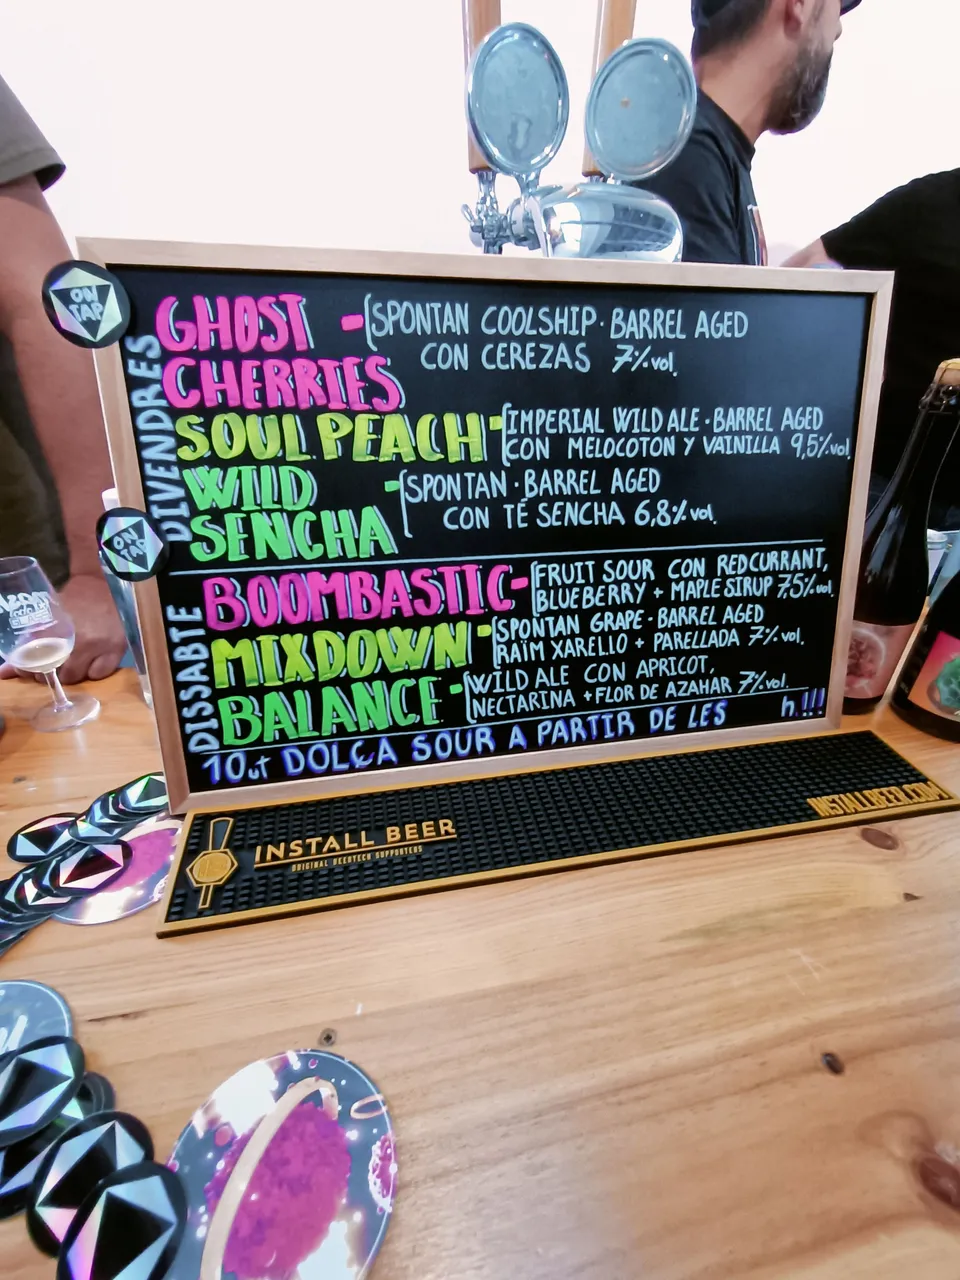 ON TAP
DIVENDRES
GHOST CHERRIES - SPONTAN COOLSHIP · BARREL AGED
CON CEREZAS 7% vol.
SOUL PEACH - IMPERIAL WILD ALE · BARREL AGED
CON MELOCOTON Y VAINILLA 9,5% vol.
WILD SENCHA - SPONTAN · BARREL AGED
CON TÉ SENCHA 6,8% vol.
ON TAP
DISSABTE
BOOMBASTIC - FRUIT SOUR CON REDCURRANT,
BLUEBERRY + MAPLE SIRUP 7,5% vol.
MIXDOWN - SPONTAN GRAPE · BARREL AGED
RAÏM XARELLO + PARELLADA 7% vol.
BALANCE - WILD ALE CON APRICOT,
NECTARINA + FLOR DE AZAHAR 7% vol.
10ut DOLÇA SOUR A PARTIR DE LES h.!!!
INSTALL BEER
ORIGINAL BEERTECH SUPPORTERS
INSTALLBEER.COM